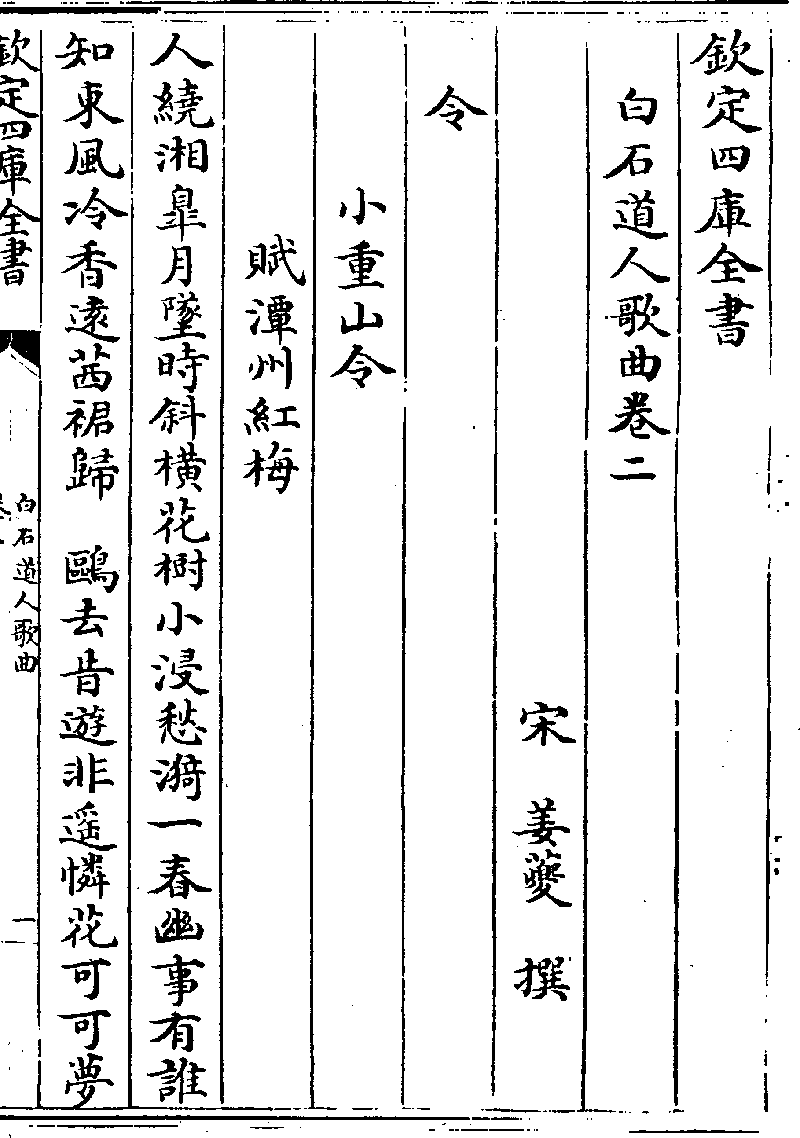 欽定四庫全書
白石道人歌曲卷二
宋 姜夔 撰
令
小重山令
賦潭州紅梅
人繞湘臯月墜時斜橫花樹小浸愁漪一春幽事有誰
知東風冷香遠茜裙歸 鷗去昔遊非遥憐花可可夢
欽定四庫全書
白石道人歌曲
一